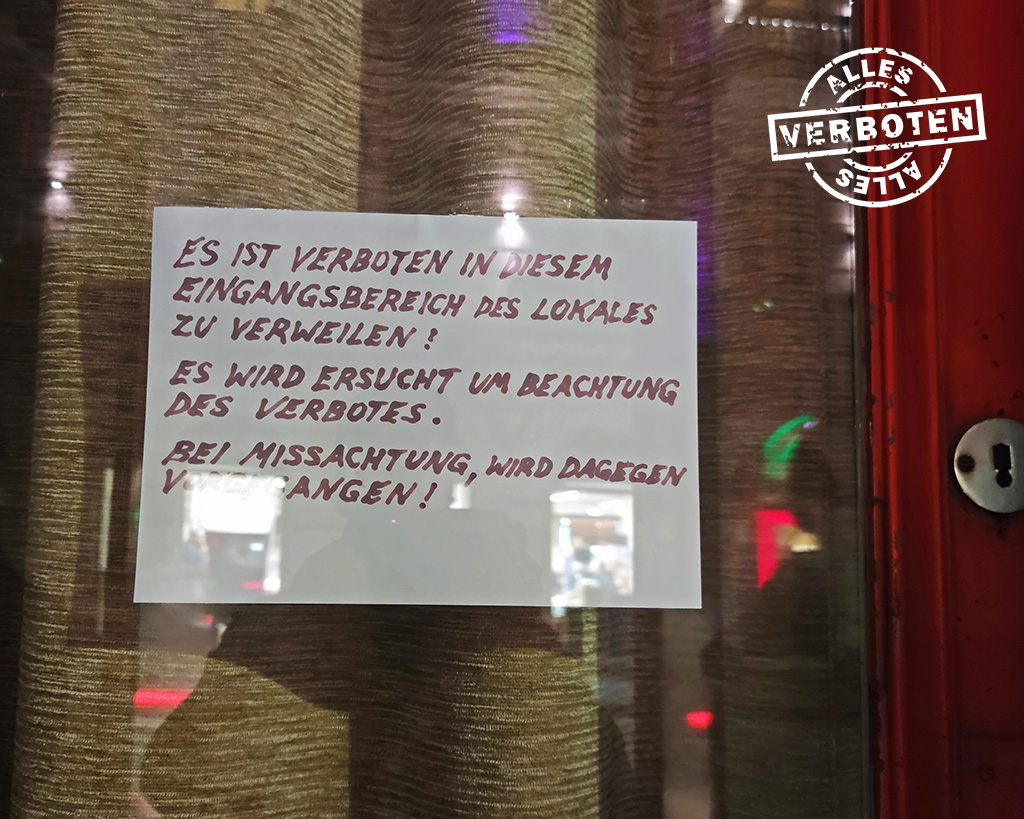 ALLES
VERBOTEN
ALLES
ES IST VERBOTEN IN DIESEM
EINGANGSBEREICH DES LOKALES
ZU VERWEILEN!
ES WIRD ERSUCHT UM BEACHTUNG
DES VERBOTES.
BEI MISSACHTUNG, WIRD DAGEGEN
VORGEGANGEN!